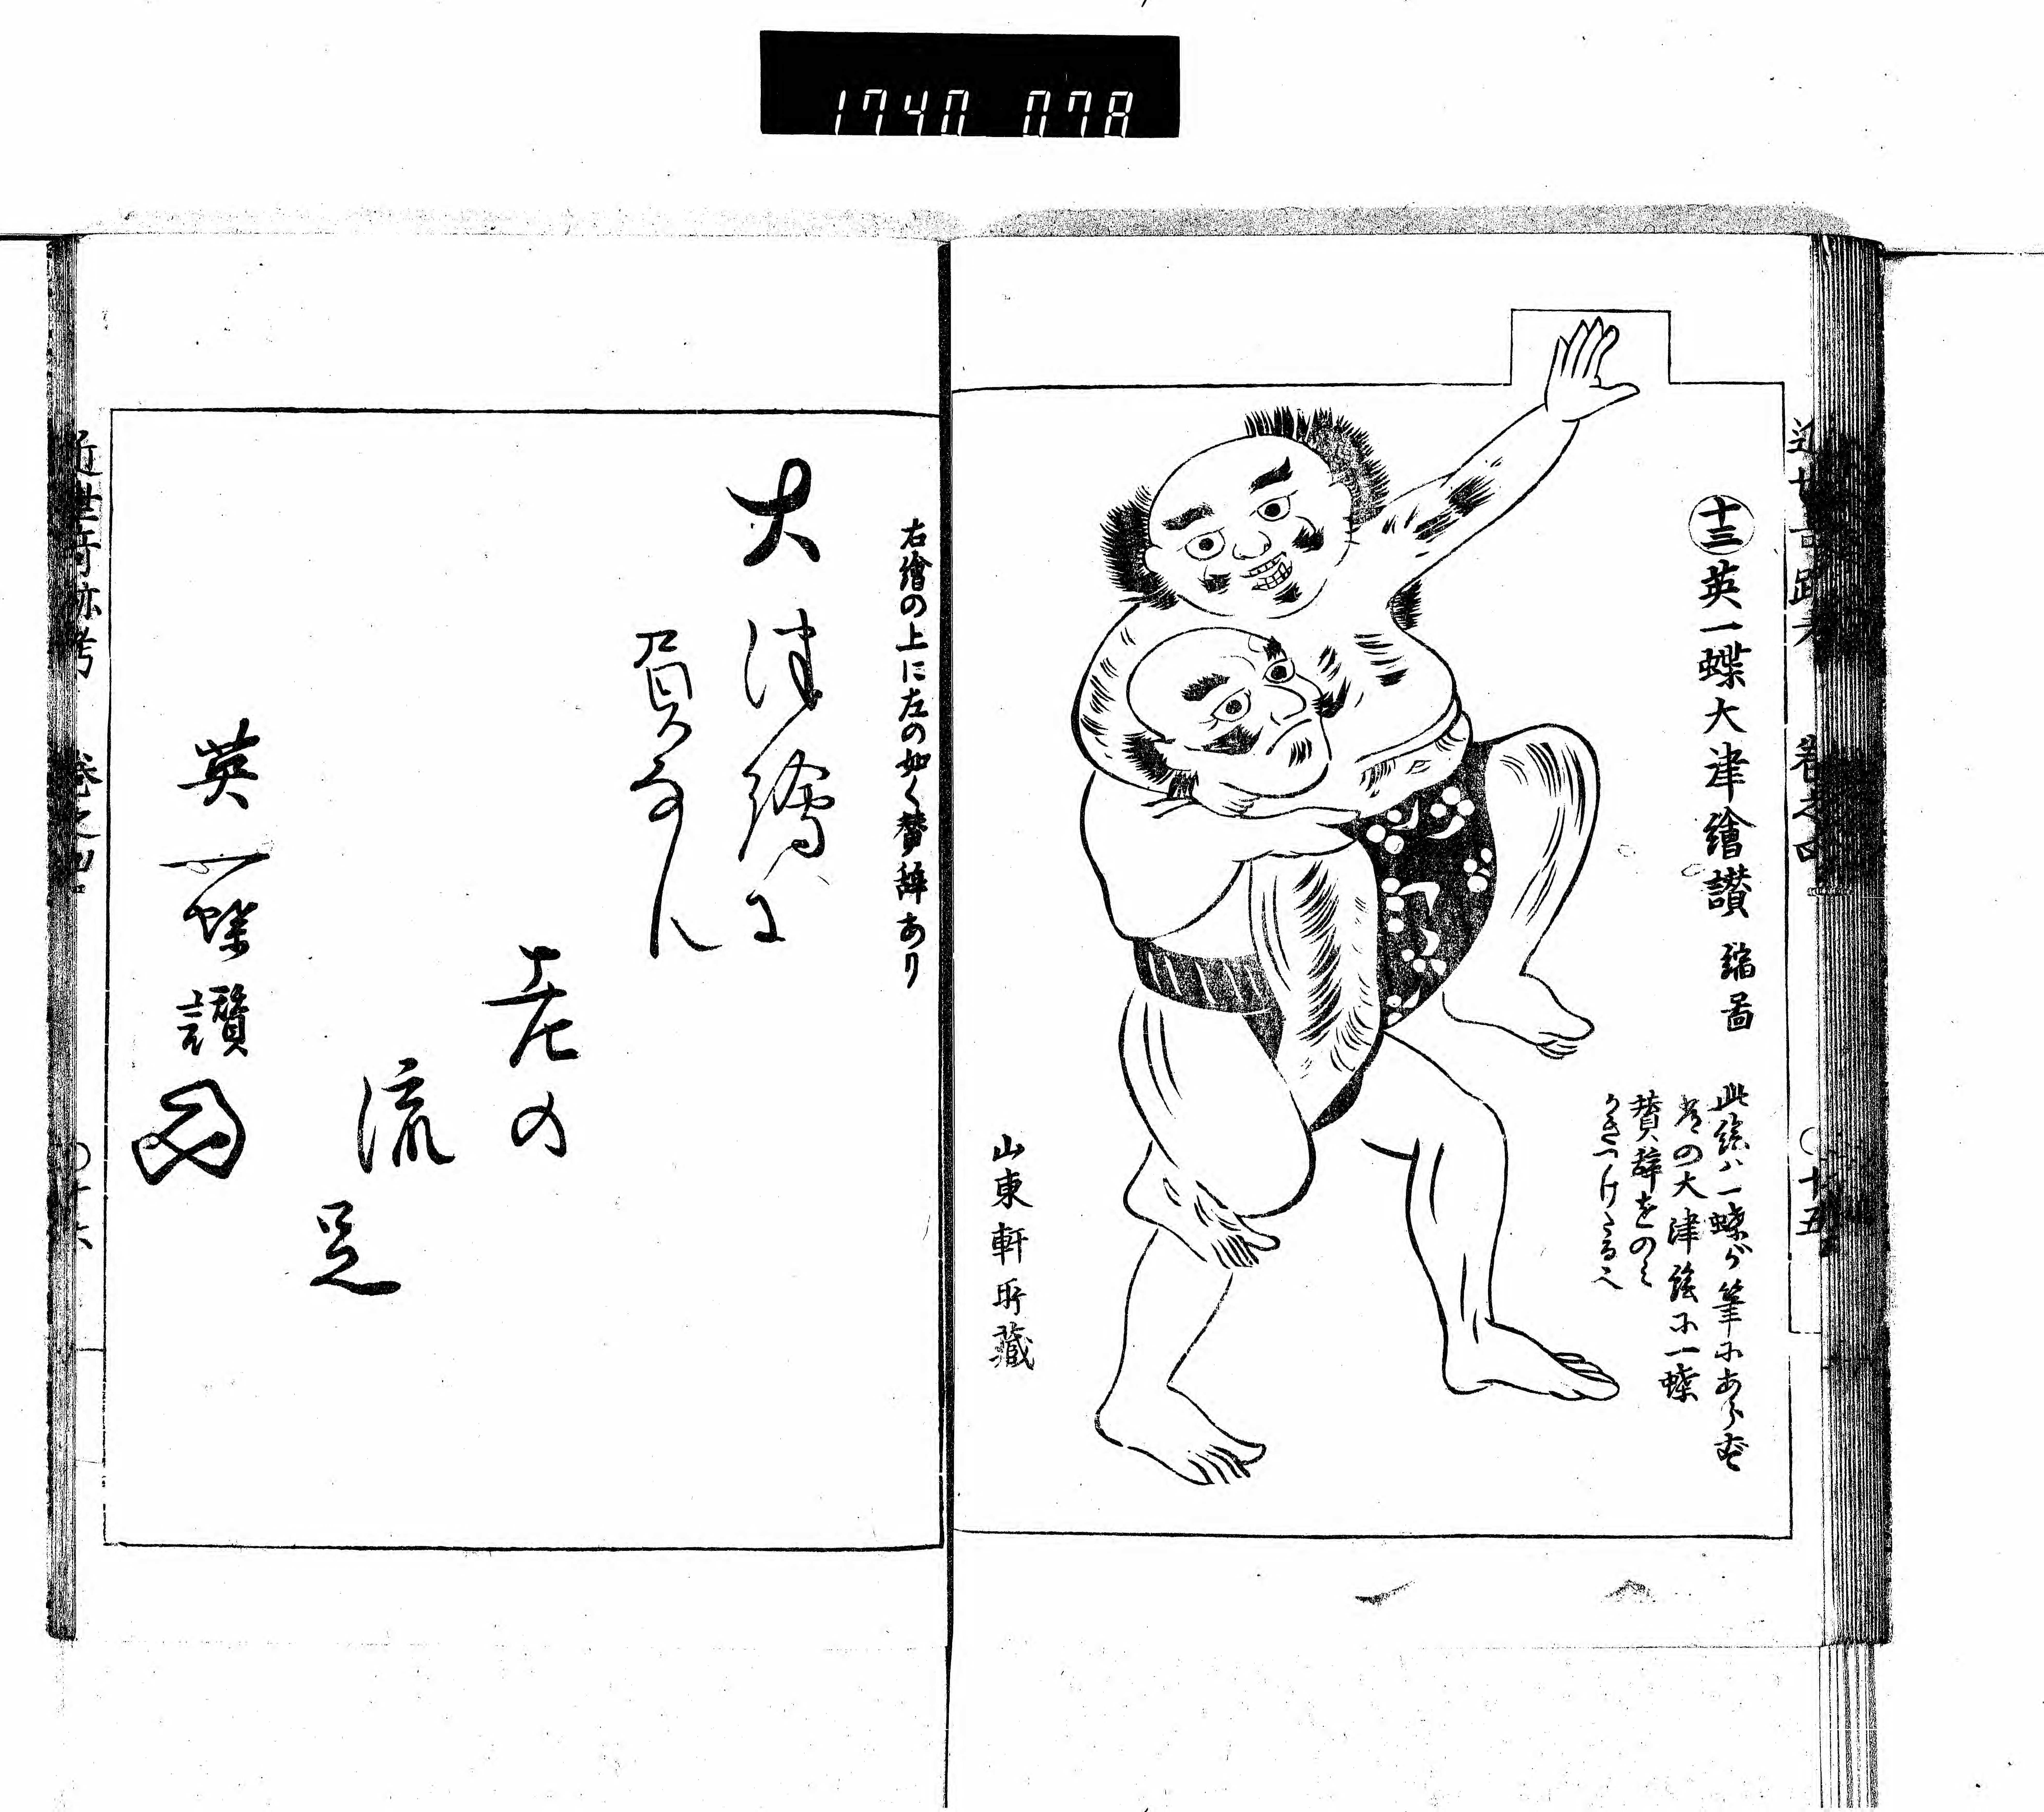 1740 078
十三 英一蝶大津繪讃 縮圖
此繪ハ一蝶が筆にあらず
昔の大津繪に一蝶
賛辞をのミ
かきつけたる也
山東軒所藏
右繪の上に左の如く賛辞あり
大津繪に
負なん
老の
流
足
英一蝶讃
近世奇跡考 巻之四 〇十五
近世奇跡考 巻之四 〇十六